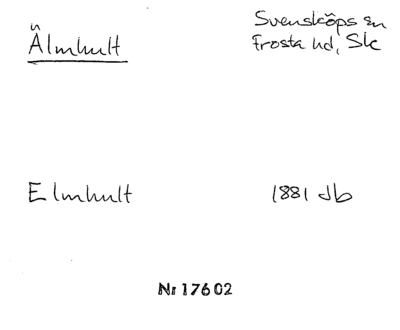 Älmhult
Svensköps sn
Frosta hd, Sk
Elmhult
1881 db
Nr 17602